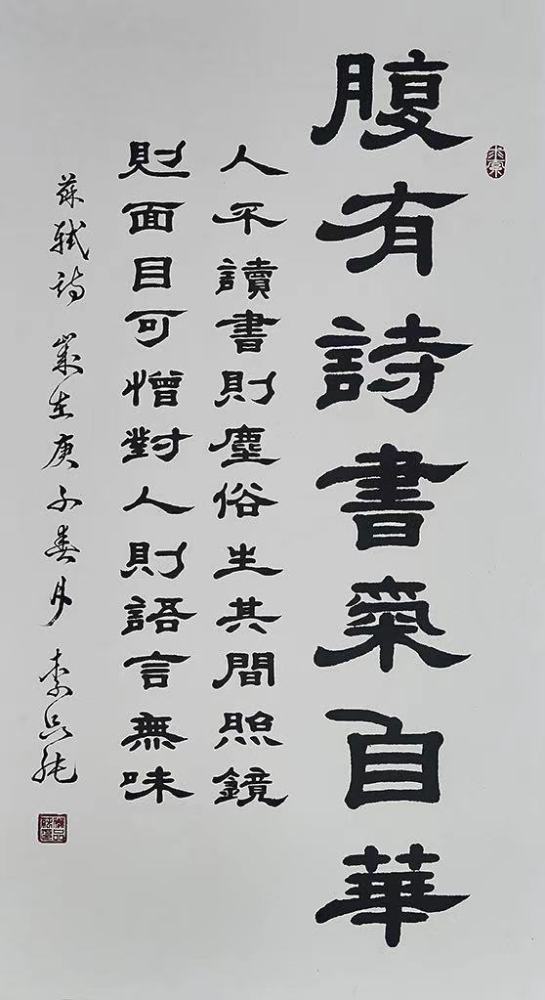 腹有詩書氣自華
人不讀書則塵俗生其間照鏡
則面目可憎對人則語言無味
蘇軾詩 歲在庚子春月 李